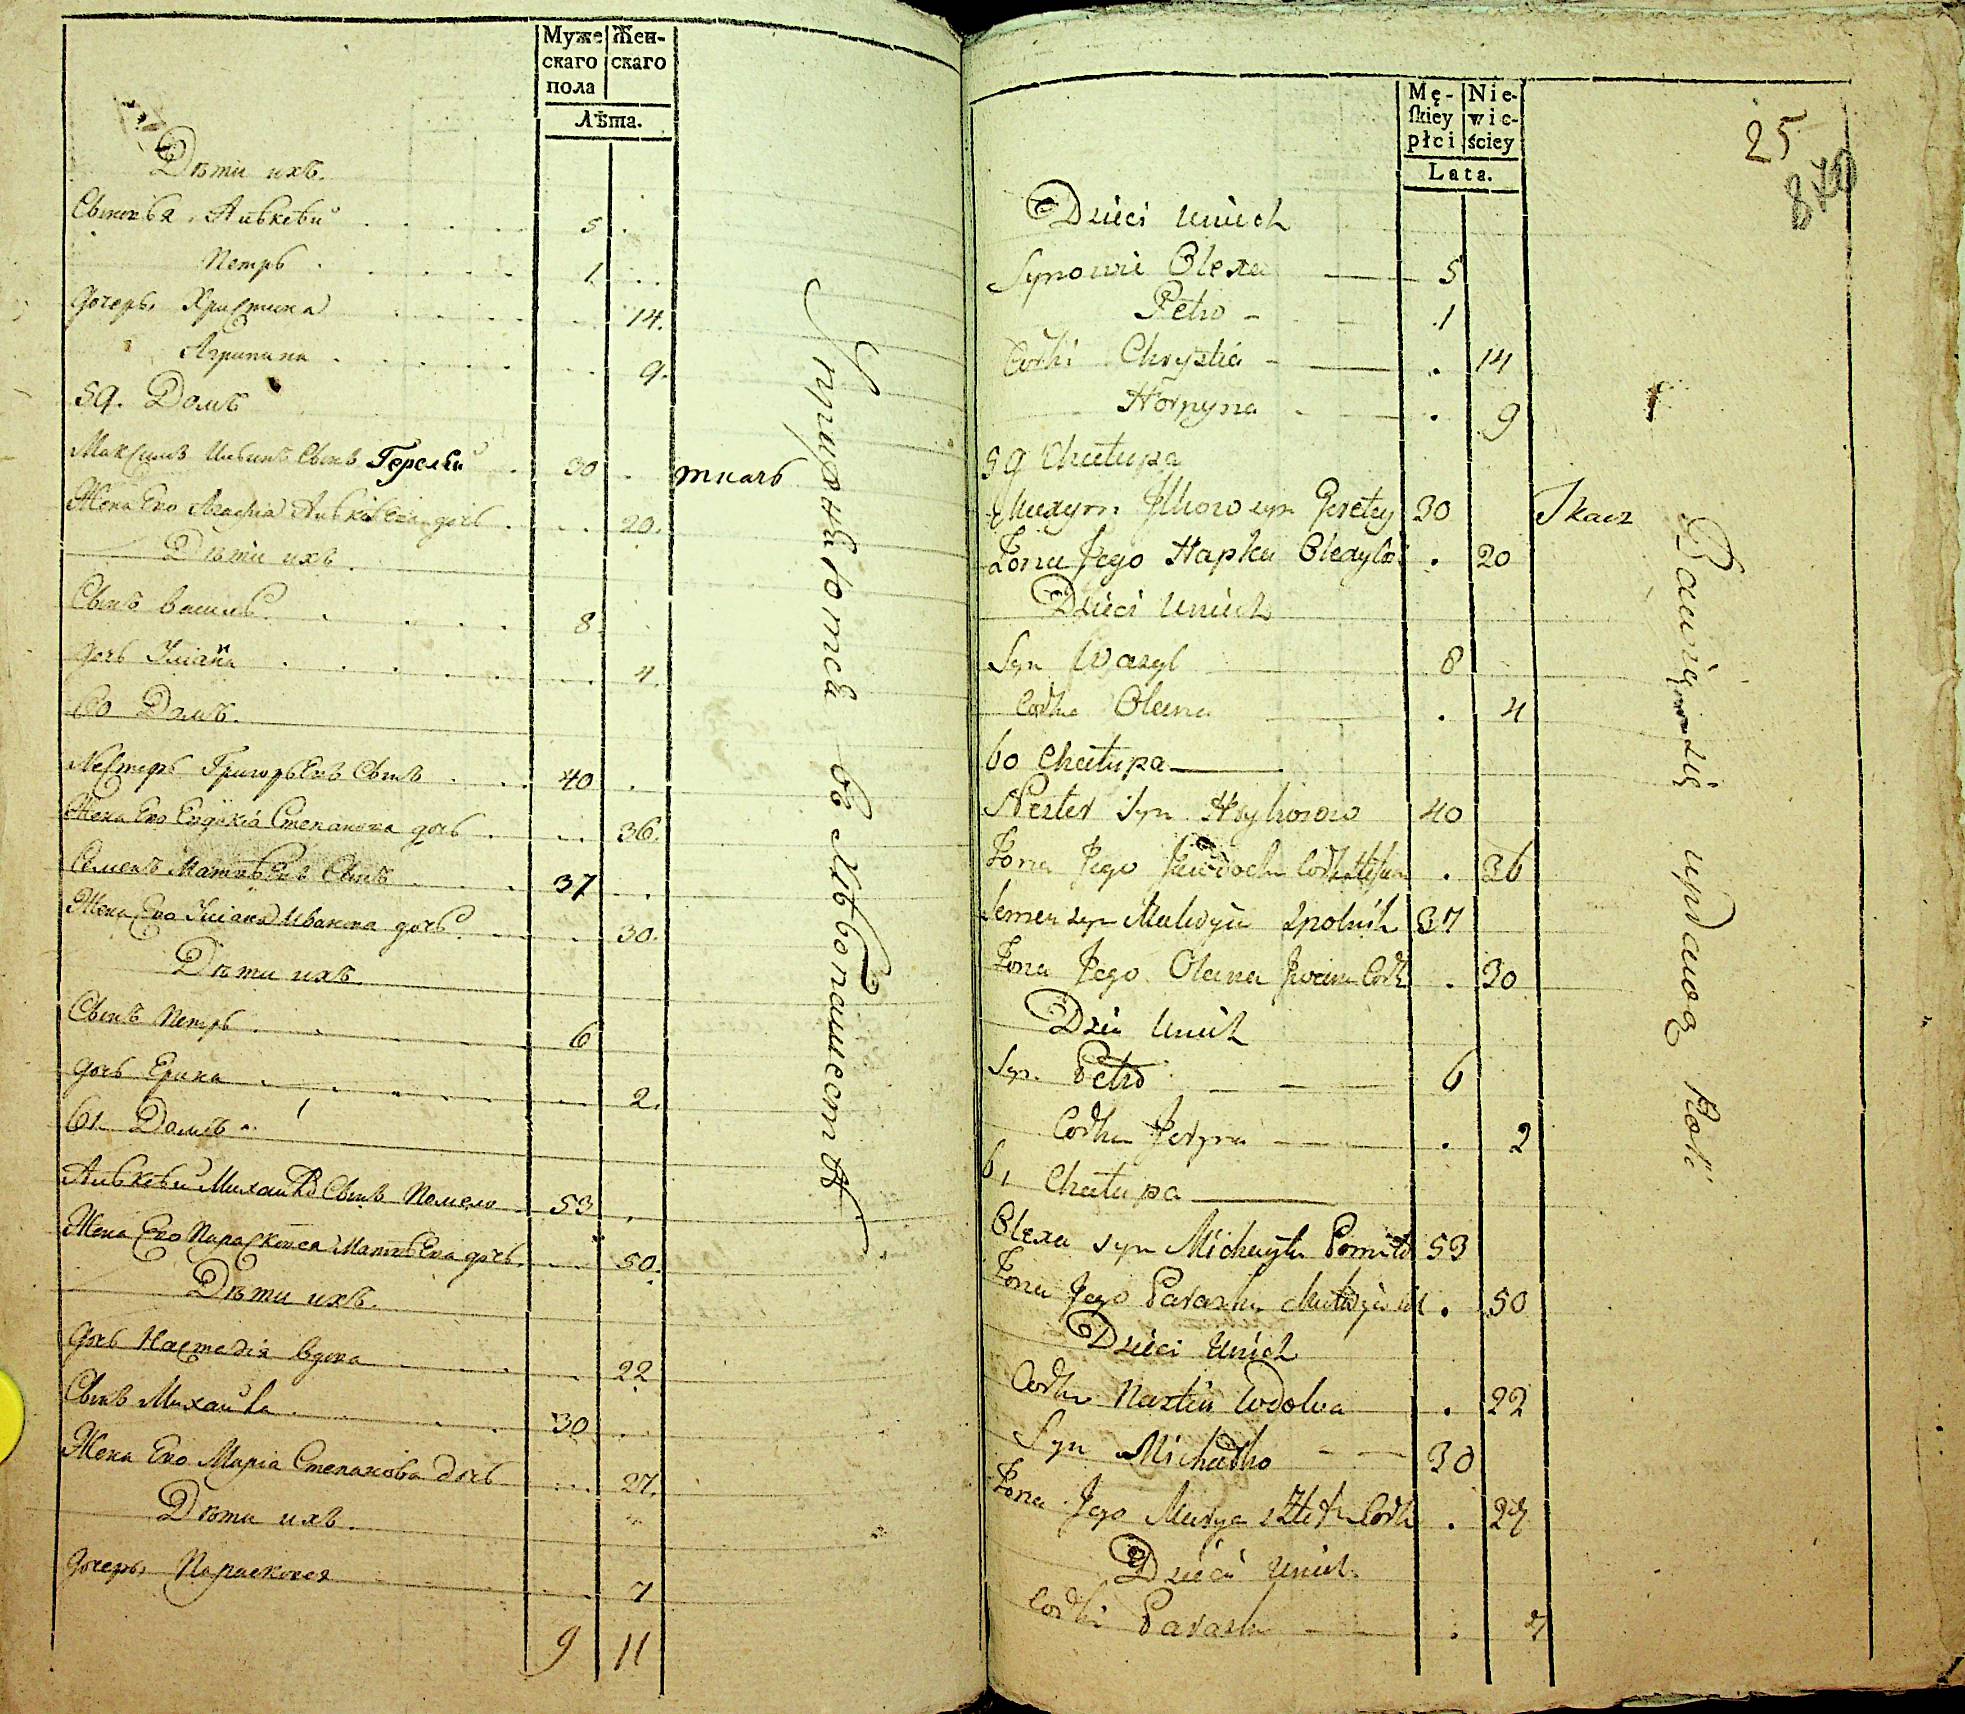 Муже
скаго
пола
Жен-
скаго
Лѣта.
Дѣти ихъ.
Сыновья. Алѣксѣй 5
Петръ 1
Дочерь, Христина 14.
Агрипина 9.
59. Домъ
Максимъ Сынъ Герелѣй 30 ткачь
Жена Его Агафія дочь 20.
Дѣти ихъ.
Сынъ Василь 8.
дочь Уліана 4.
60 Домъ.
Нестеръ Григорьевъ Сынъ 40
Жена Его Евдокія Степанова дочь 36.
Семенъ Матвѣевъ Сынъ 37
Жена Его Уліана Иванова дочь 30.
Дѣти ихъ.
Сынъ Петръ 6
дочь Ерина 2.
61 Домъ
Алѣксѣй Михайлов Сынъ Помело 53
Жена Его Параскевія Матвѣева дочь 50.
Дѣти ихъ.
дочь Настасія вдова 22
Сынъ Михайла 30
Жена Его Марія Степанова дочь 27.
Дѣти ихъ.
дочерь, Параскевия 7
9 11
Упражняются въ хлѣбопашествѣ
Mę-
skiey
płci
Nie-
wie-
ściey
Lata.
25
Dzieci Uniech
Synowie Olexa 5
Petro 1
Corki Chrystia 14
Horpyna 9
59 Chałupa
Maxym Ilkow syn 30 Tkacz
Żona Jego Hapka 20
Dzieci Uniech
Syn Wasyl 8
Corka Olena 4
60 Chałupa
Nester Syn Hryhorow 40
Żona Jego Jewdocha 36
Semen syn Matwija Spolnik 37
Żona Jego Olena Iwana Cork 30
Dzieci Unich
Syn Petro 6
Corka Jeryna 2
61 Chałupa
Olexa syn Michayła Pomiło 53
Żona Jego Paraska Matwija 50
Dzieci Unich
Corka Nastia Wdowa 22
Syn Michałko 30
Żona Jego Marya Cork 27
Dzieci Unich
Corki Paraska 7
Bawią się uprawą Roli